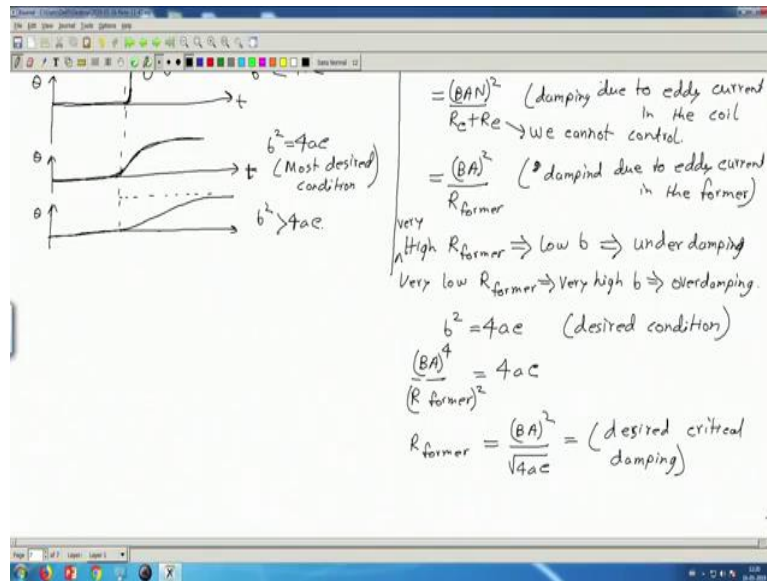 File Edit View Journal Tools Options Help
θ
t
θ
t
b² = 4ac
(Most desired
condition)
θ
b² > 4ac.
= (BAN)² / Rc + Re (damping due to eddy current
in the coil
→ we cannot control.
= (BA)² / Rformer (dampind due to eddy current
in the former)
very
High Rformer ⇒ low b ⇒ under damping
Very low Rformer ⇒ Very high b ⇒ overdamping.
b² = 4ac (desired condition)
(BA)⁴ / (R former)² = 4ac
Rformer = (BA)² / √4ac = (desired critical
damping)
Page 7 of 7 Layer: Layer 1